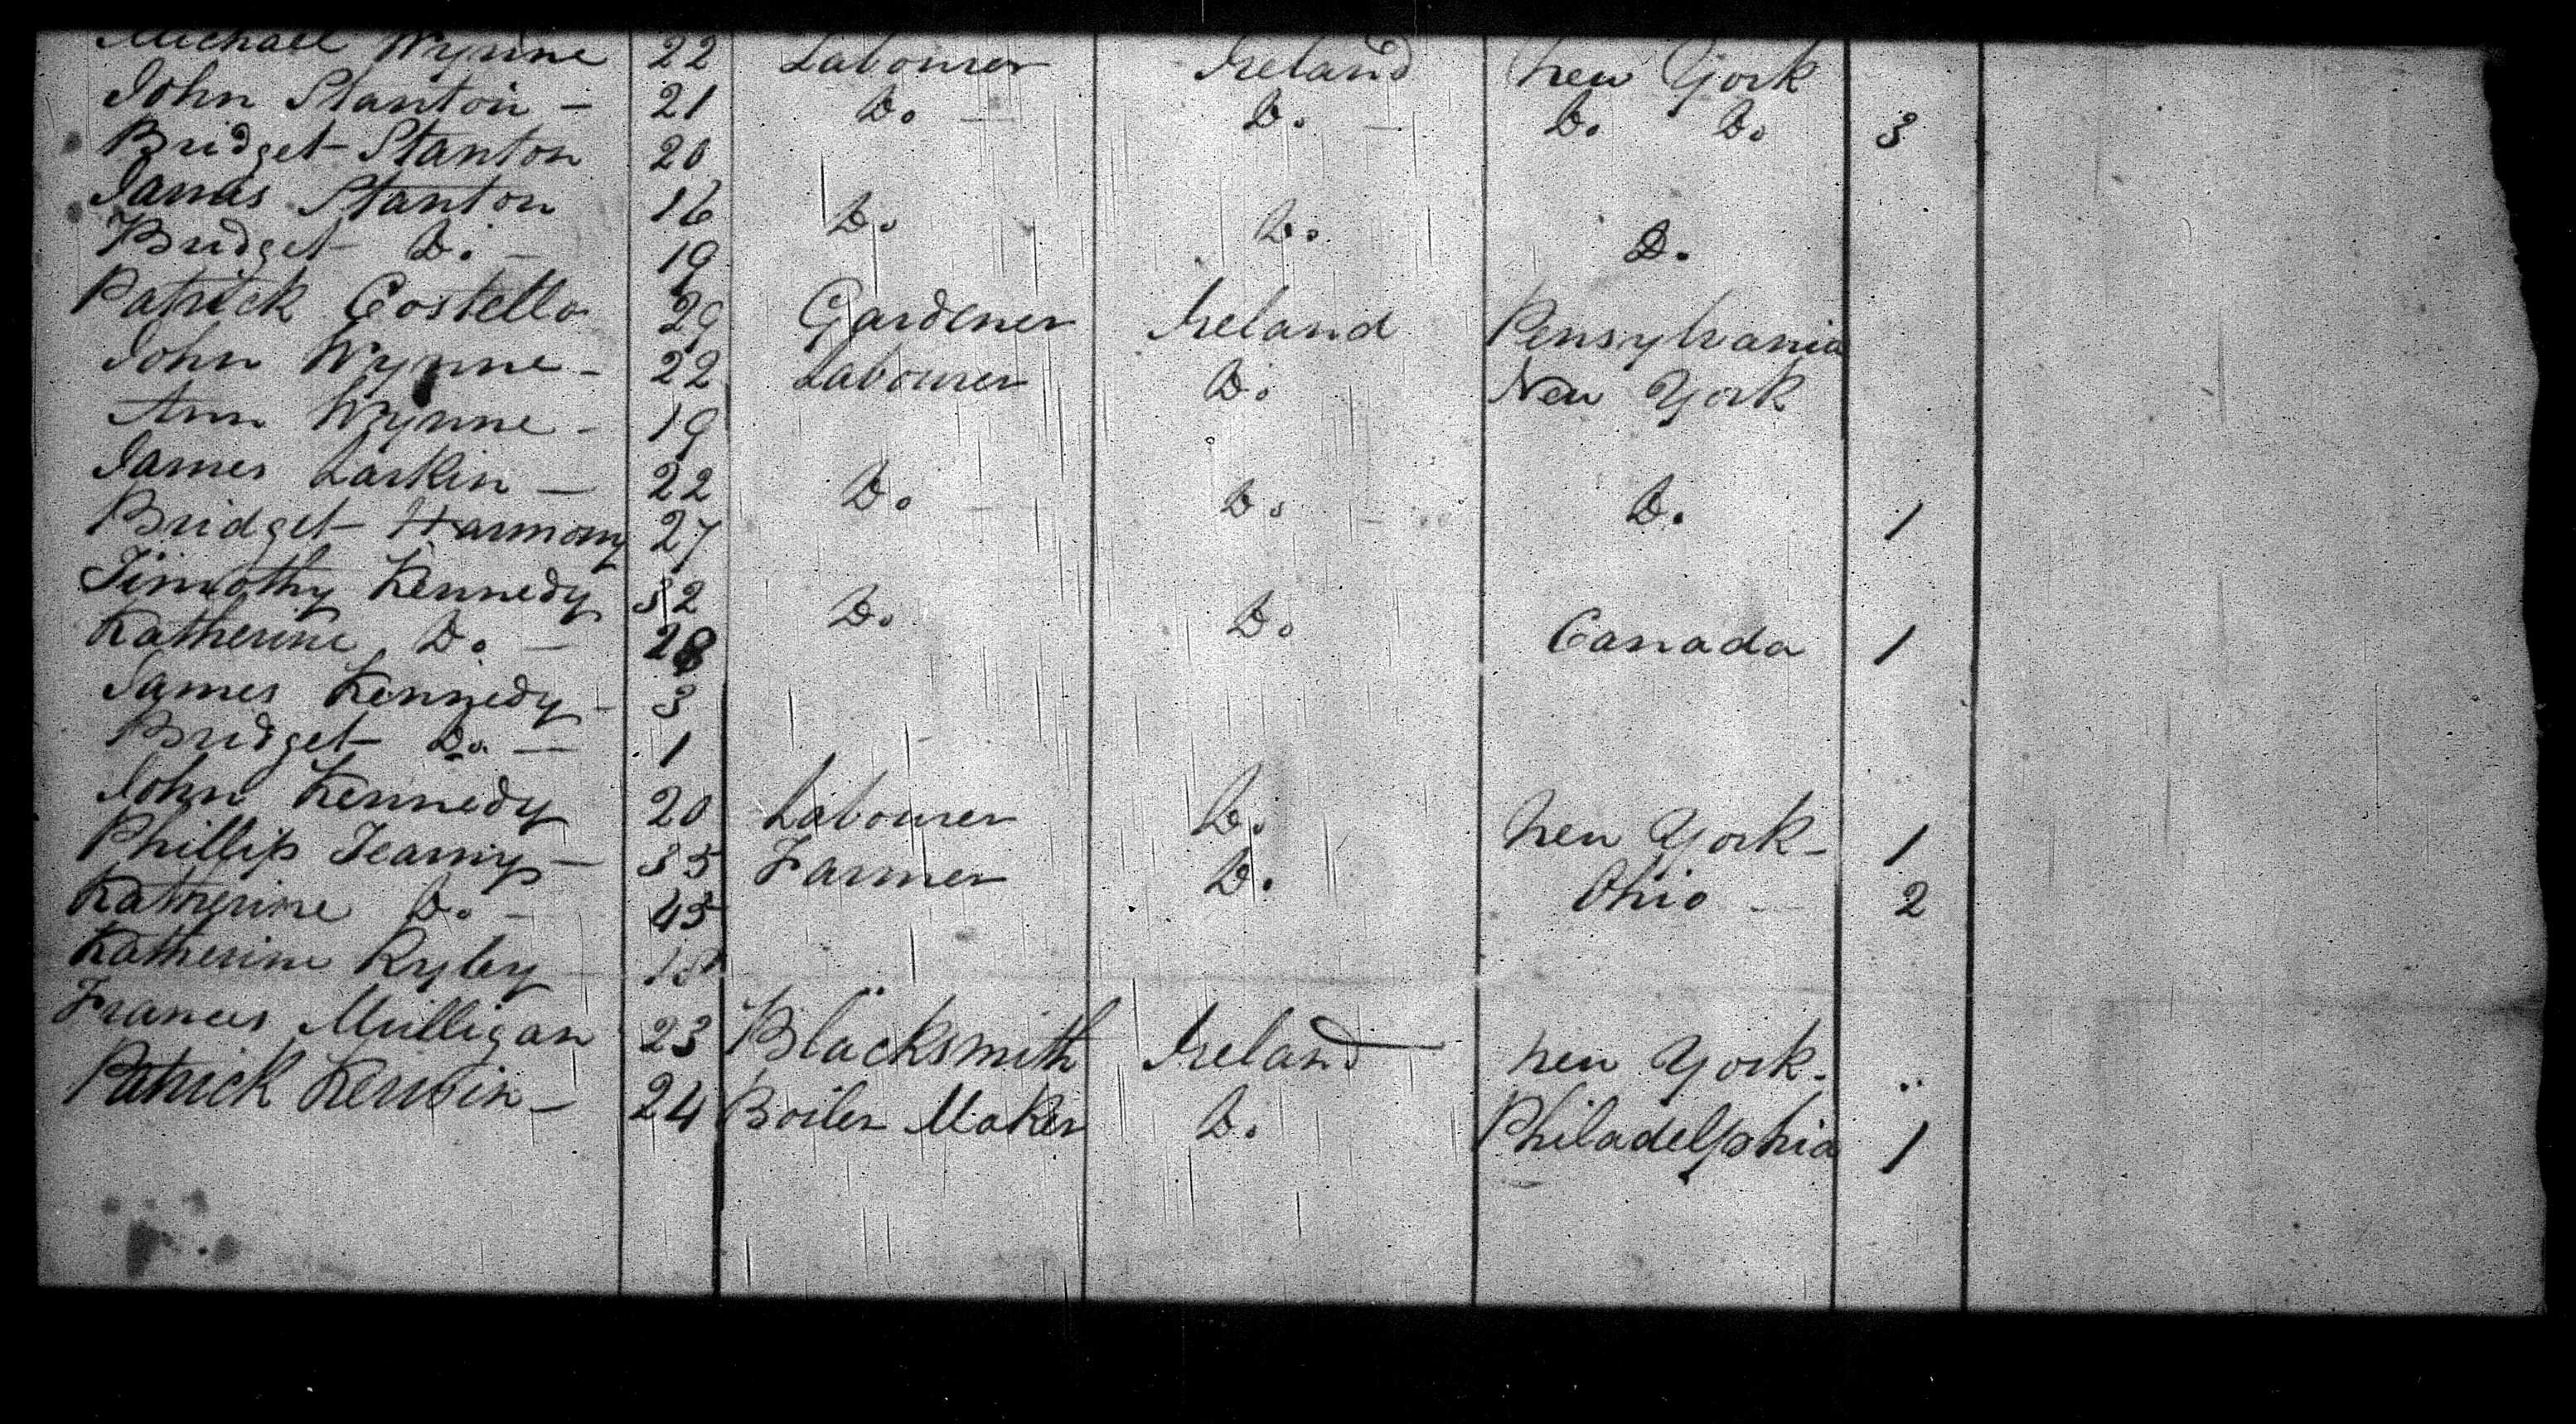 Michael Wynne 22 Labourer Ireland New York
John Stanton - 21 Do. - Do. - Do. Do. 3
Bridget Stanton 20
James Stanton 16 Do. Do. Do.
Bridget Do. - 19
Patrick Costello 29 Gardener Ireland Pensylvania
John Wynne - 22 Labourer Do. New York
Ann Wynne - 19
James Larkin - 22 Do. Do. Do. 1
Bridget Harmony 27
Timothy Kennedy 32 Do. Do. Canada 1
Katherine Do. - 28
James Kennedy - 3
Bridget Do. - 1
John Kennedy 20 Labourer Do. New York - 1
Phillip - 35 Farmer Do. Ohio - 2
Katherine Do. - 45
Katherine Ryley
Frances Mulligan 23 Blacksmith Ireland New York - ..
Patrick Kerwin - 24 Boiler Maker Do. Philadelphia 1